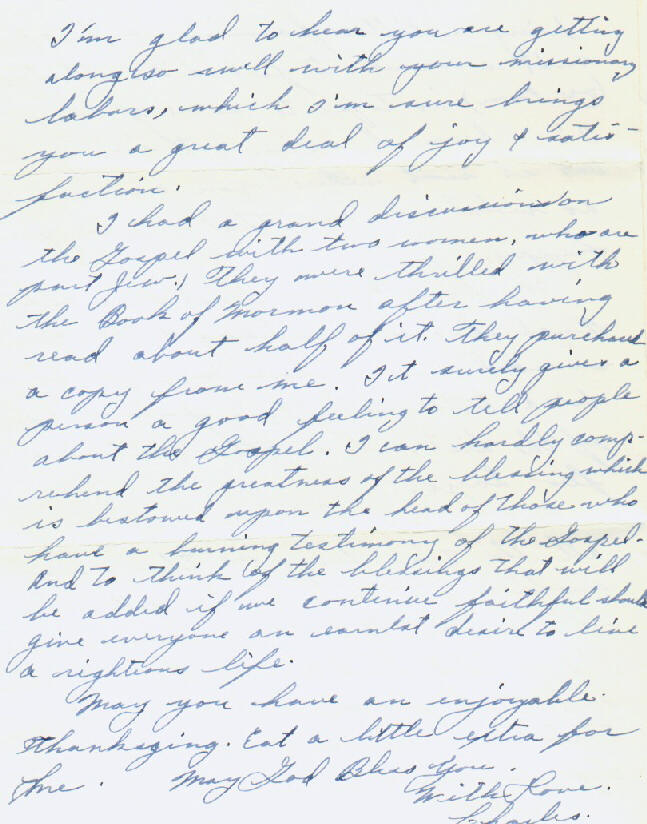 I'm glad to hear you are getting
along so well with your missionary
labors, which I'm sure brings
you a great deal of joy & satis-
faction.
I had a grand discussion on
the Gospel with two women, who are
part Jew. They were thrilled with
the Book of Mormon after having
read about half of it. They purchased
a copy from me. It surely gives a
person a good feeling to tell people
about the Gospel. I can hardly comp-
rehend the greatness of the blessing which
is bestowed upon the head of those who
have a burning testimony of the Gospel.
And to think of the blessings that will
be added if we continue faithful should
give everyone an earnest desire to live
a rightious life.
May you have an enjoyable
Thanksging. Eat a little extra for
me. May God Bless You.
With Love.
Charles.